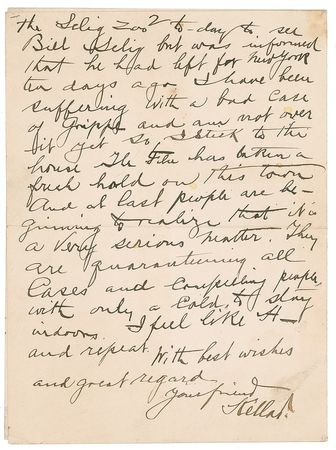 the Selig Zoo to-day to see
Bill Selig but was informed
that he had left for New York
ten days ago. I have been
suffering with a bad case
of Gripps and am not over
it yet so I stick to the
house The Flu has taken a
fresh hold on this town
And at last people are be-
ginning to realize that it is
a very serious matter. They
are quaranteening all
Cases and Compelling people
with only a Cold, to stay
indoors. I feel like H—
and repeat. With best wishes
and great regard
Your friend
Kellar.